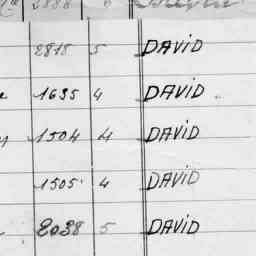 2815 5 DAVID
1635 4 DAVID
1504 4 DAVID
1505 4 DAVID
2038 5 DAVID